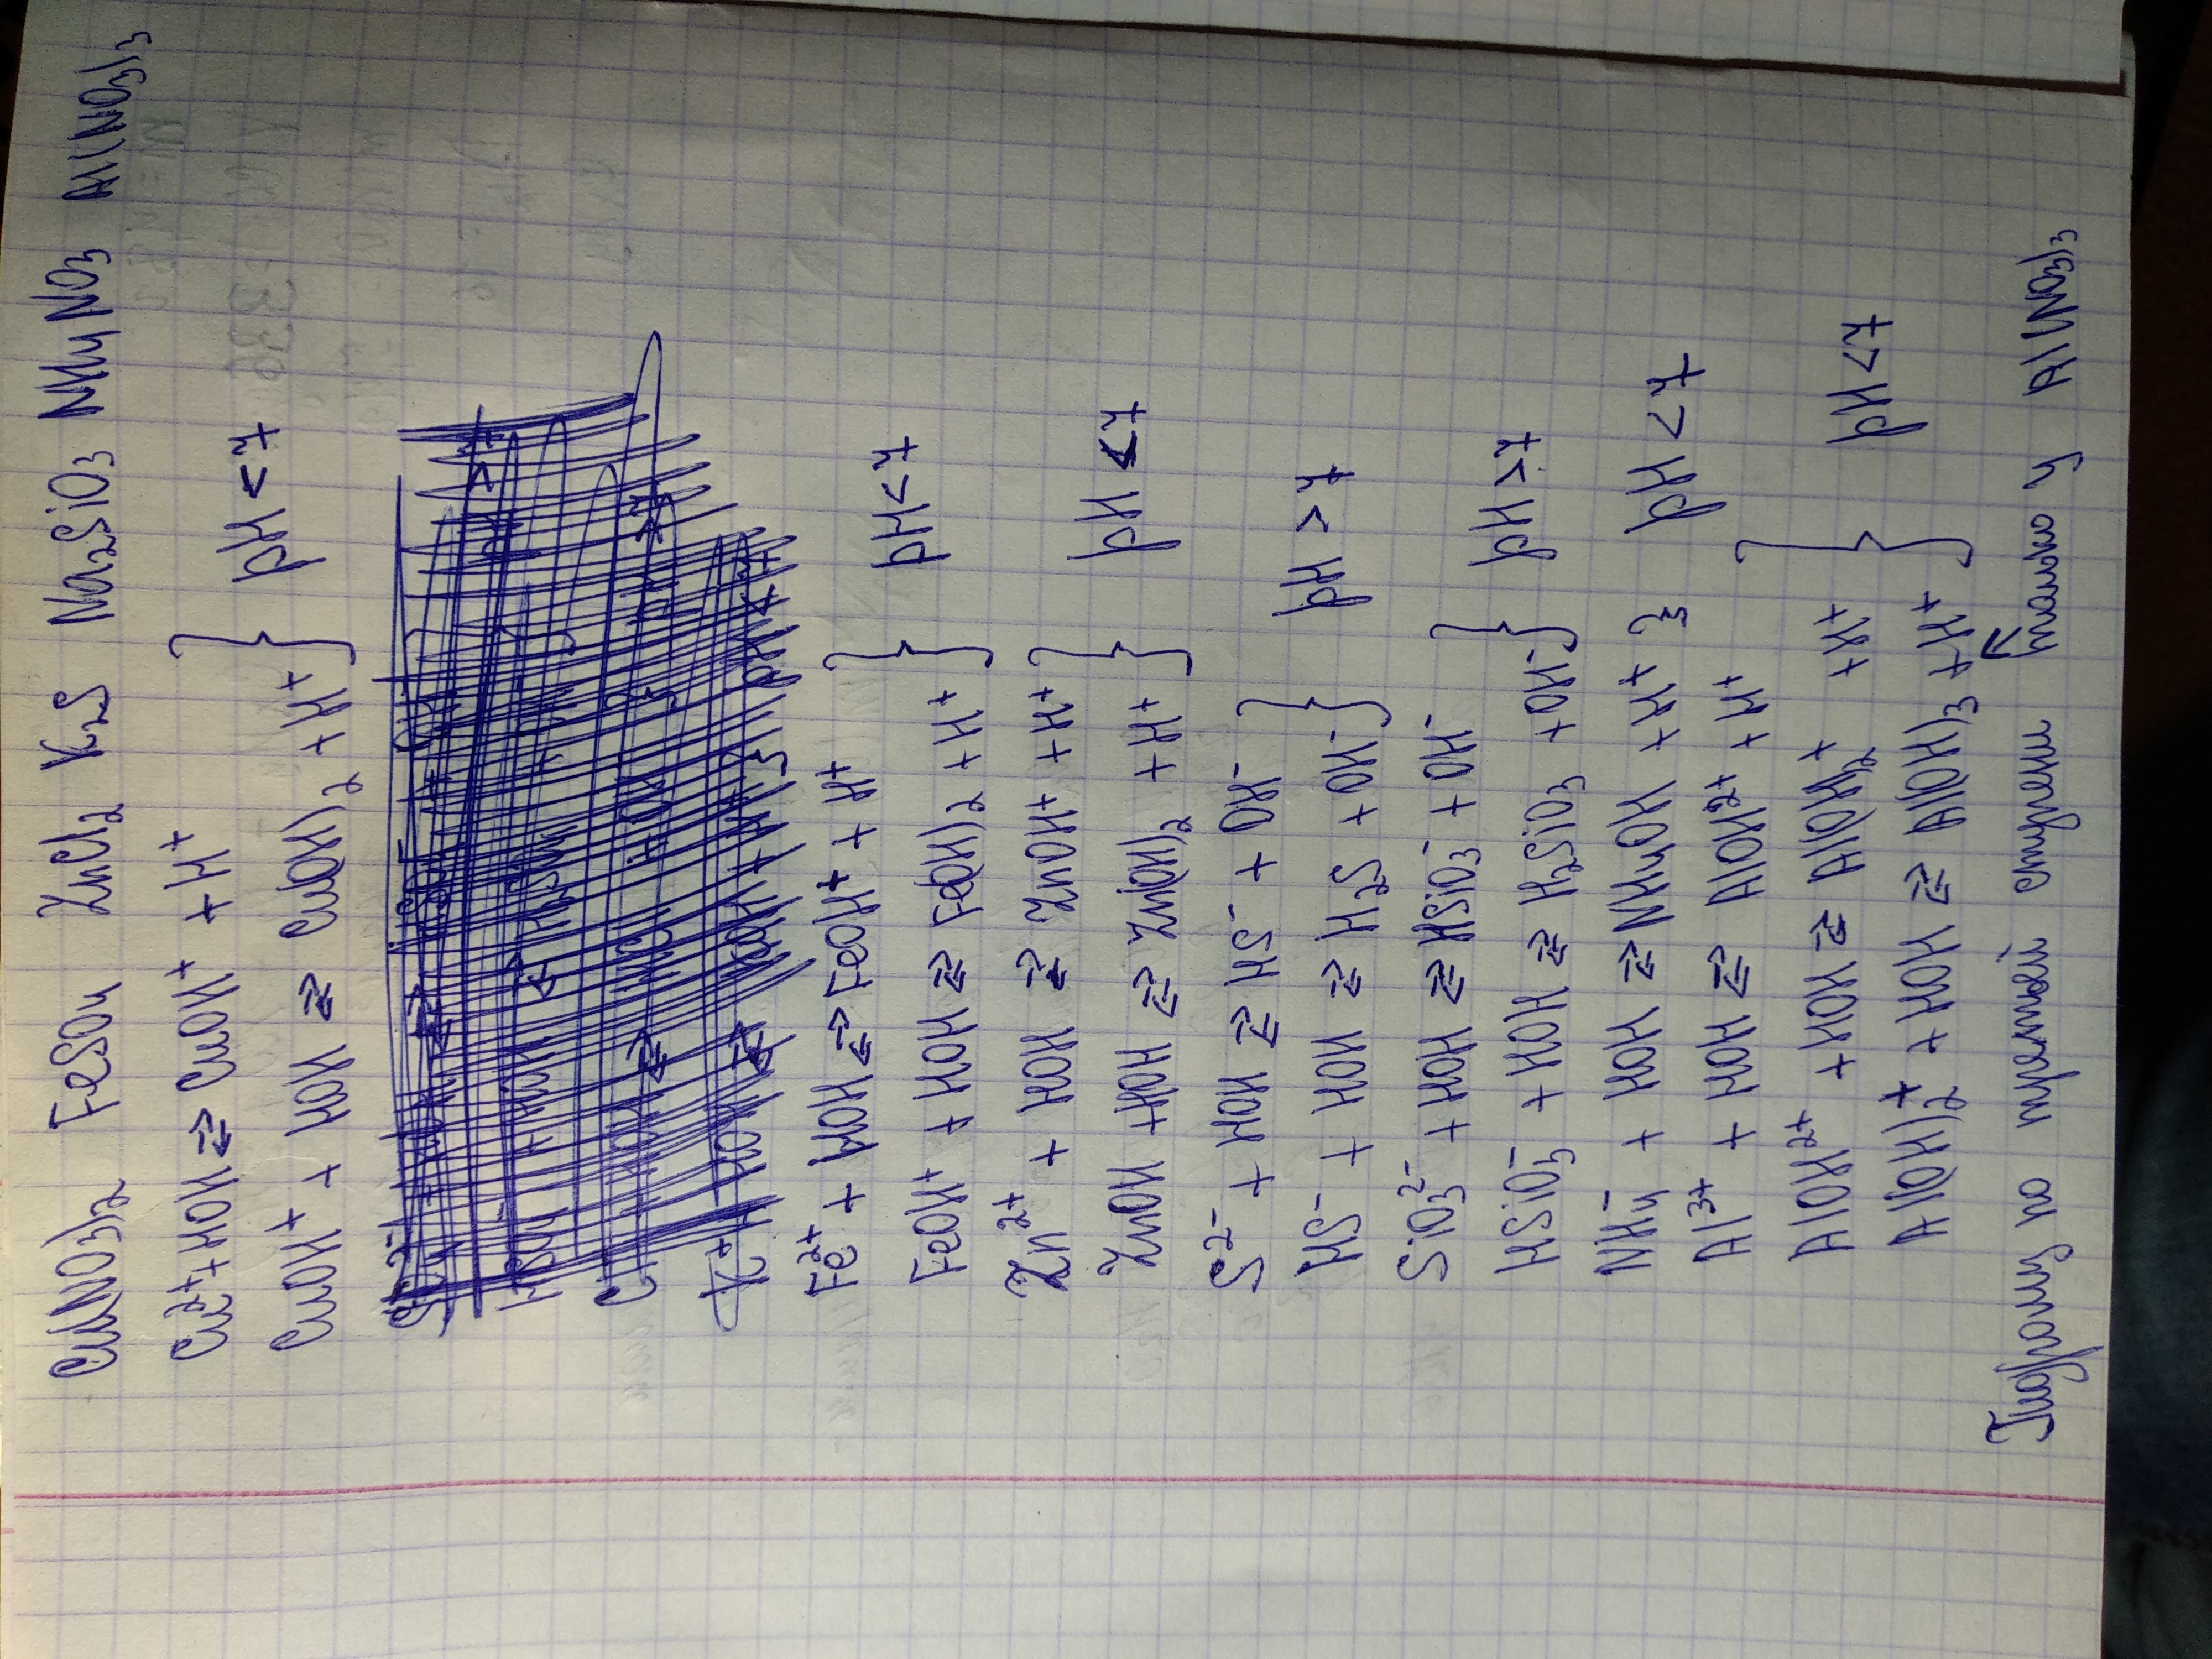 Cu(NO3)2 FeSO4 ZnCl2 K2S Na2SiO3 NH4NO3 Al(NO3)3
Cu2+ + HOH ⇄ CuOH+ + H+
CuOH+ + HOH ⇄ Cu(OH)2 + H+ } pH < 7
Fe2+ + HOH ⇄ FeOH+ + H+
FeOH+ + HOH ⇄ Fe(OH)2 + H+ } pH < 7
Zn2+ + HOH ⇄ ZnOH+ + H+
ZnOH + HOH ⇄ Zn(OH)2 + H+ } pH < 7
S2- + HOH ⇄ HS- + OH-
HS- + HOH ⇄ H2S + OH- } pH > 7
SiO3 2- + HOH ⇄ HSiO3- + OH-
HSiO3- + HOH ⇄ H2SiO3 + OH- } pH > 7
NH4- + HOH ⇄ NH4OH + H+ } pH < 7
Al3+ + HOH ⇄ AlOH2+ + H+
AlOH2+ + HOH ⇄ Al(OH)2+ + H+
Al(OH)2+ + HOH ⇄ Al(OH)3 + H+ } pH < 7
Гидролиз по третьей ступени только у Al(NO3)3